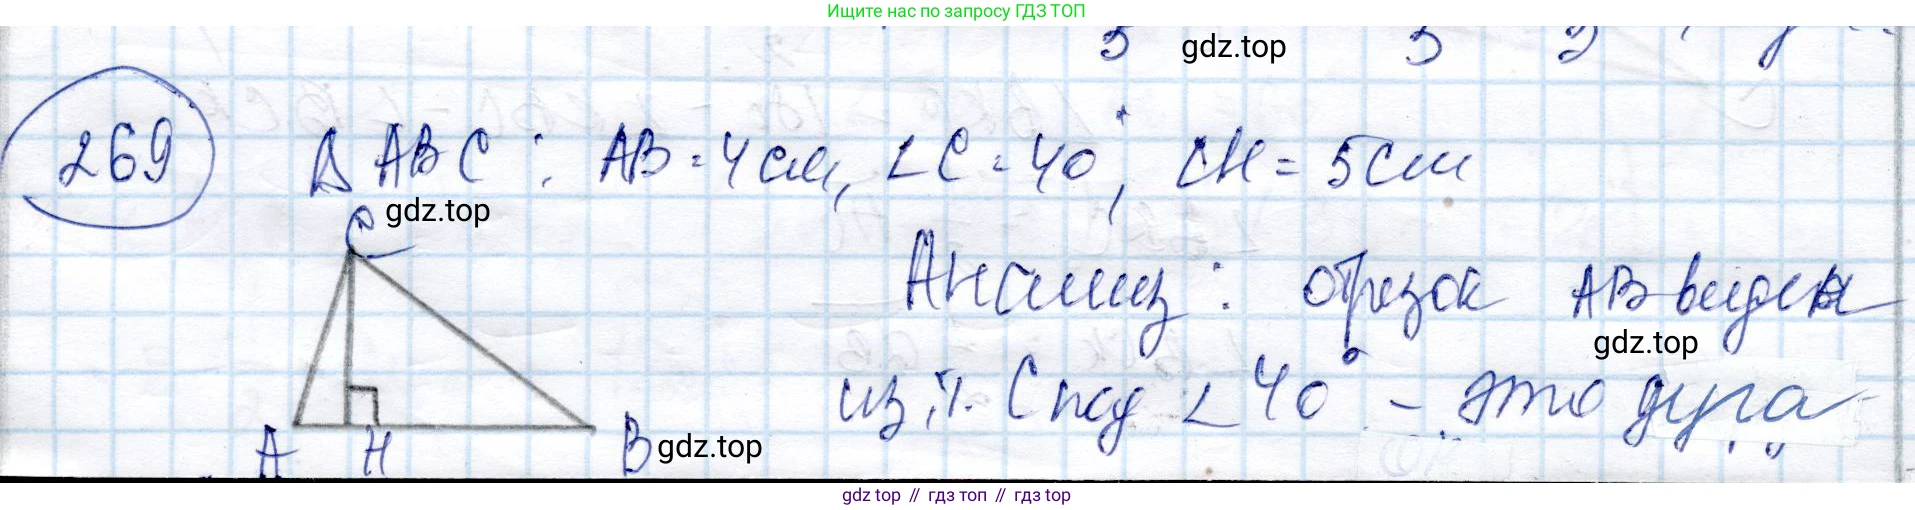 Ищите нас по запросу ГДЗ ТОП
gdz.top
269 Δ ABC: AB = 4 см, ∠C = 40°, CH = 5 см
gdz.top
C
Анализ: отрезок AB виден
gdz.top
из т. C под ∠ 40° – это дуга
A H B gdz.top
gdz top // гдз топ // гдз top